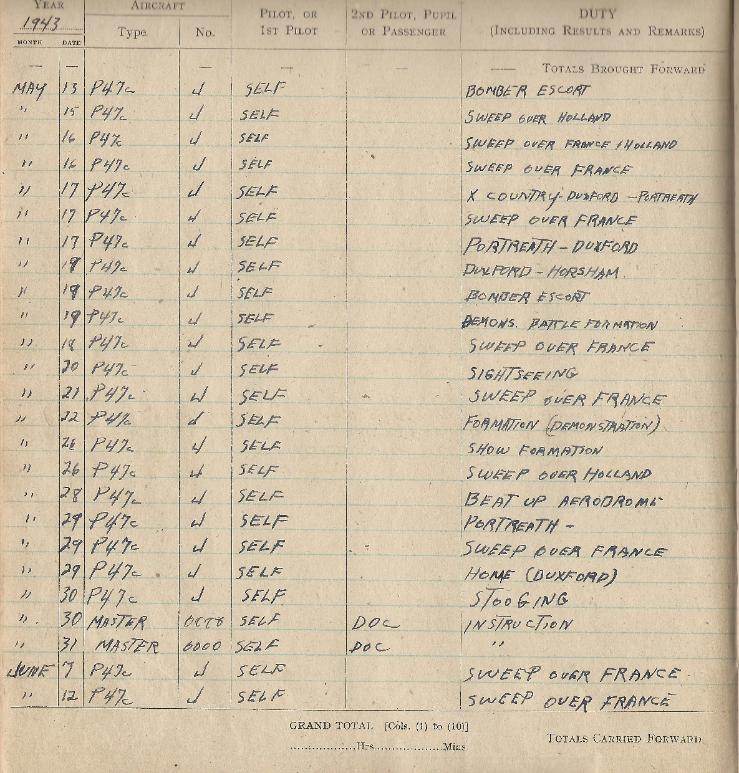 YEAR AIRCRAFT PILOT, OR 2ND PILOT, PUPIL DUTY
1943 Type No. 1ST PILOT OR PASSENGER (INCLUDING RESULTS AND REMARKS)
MONTH DATE
— — — — — —— TOTALS BROUGHT FORWARD
MAY 13 P47c J SELF BOMBER ESCORT
" 15 P47c J SELF SWEEP OVER HOLLAND
" 16 P47c J SELF SWEEP OVER FRANCE / HOLLAND
" 16 P47c J SELF SWEEP OVER FRANCE
" 17 P47c J SELF X COUNTRY-DUXFORD - PORTREATH
" 17 P47c J SELF SWEEP OVER FRANCE
" 17 P47c J SELF PORTREATH - DUXFORD
" P47c J SELF DUXFORD - HORSHAM
" P47c J SELF BOMBER ESCORT
" 19 P47c J SELF DEMONS. BATTLE FORMATION
" 18 P47c J SELF SWEEP OVER FRANCE
" 20 P47c J SELF SIGHTSEEING
" 21 P47c J SELF SWEEP OVER FRANCE
" 22 P47c J SELF FORMATION (DEMONSTRATION)
" P47c J SELF SHOW FORMATION
" 26 P47c J SELF SWEEP OVER HOLLAND
" 28 P47c J SELF BEAT UP AERODROME
" 29 P47c J SELF PORTREATH -
" 29 P47c J SELF SWEEP OVER FRANCE
" 29 P47c J SELF HOME (DUXFORD)
" 30 P47c J SELF STOOGING
" 30 MASTER SELF DOC INSTRUCTION
" 31 MASTER 6000 SELF DOC "
JUNE 7 P47c J SELF SWEEP OVER FRANCE
" 12 P47c J SELF SWEEP OVER FRANCE
GRAND TOTAL [Cols. (1) to (10)]
..................Hrs..................Mins TOTALS CARRIED FORWARD